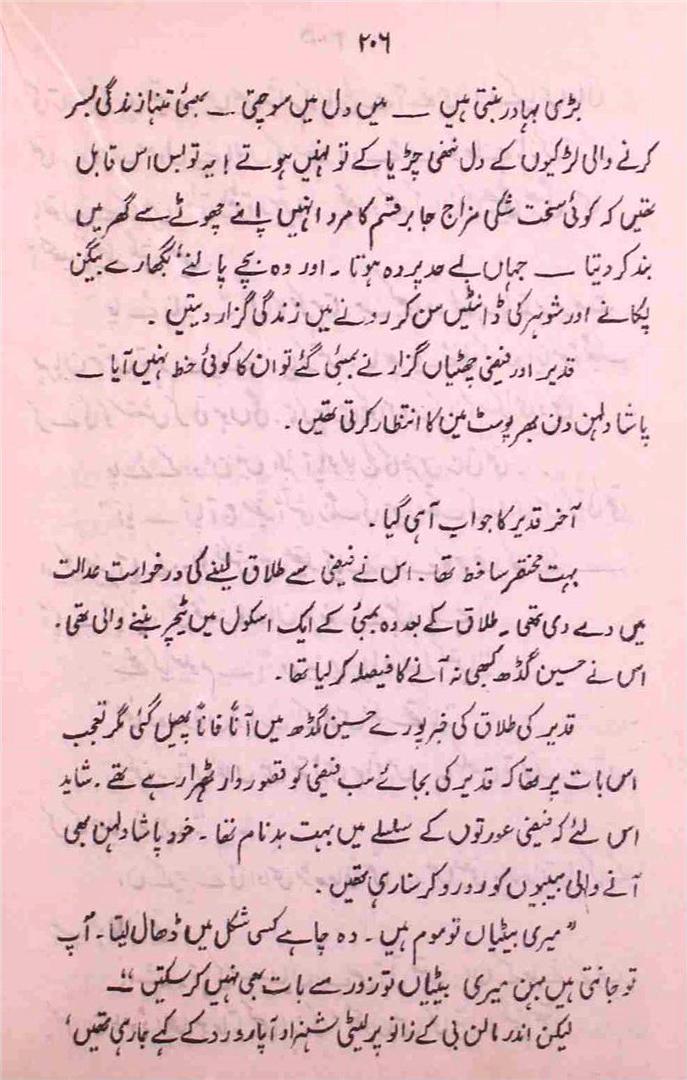 ۲۰۶
بڑی بہادر بنتی ہیں — میں دل میں سوچتی — بھئی تنہا زندگی بسر
کرنے والی لڑکیوں کے دل ننھی چڑیا کے تو نہیں ہوتے! یہ تو بس اس قابل
تھیں کہ کوئی سخت شکی مزاج جابر قسم کا مرد انہیں اپنے چھوٹے سے گھر میں
بند کر دیتا — جہاں بے حد پردہ ہوتا ۔ اور وہ بچے پالنے، بگھارے بیگن
پکانے اور شوہر کی ڈانٹیں سن کر رونے میں زندگی گزار دیتیں ۔
قدیر اور فیضی چھٹیاں گزارنے بمبئی گئے تو ان کا کوئی خط نہیں آیا —
پاشا دلہن دن بھر پوسٹ مین کا انتظار کرتی تھیں ۔
آخر قدیر کا جواب آ ہی گیا ۔
بہت مختصر سا خط تھا ۔ اس نے فیضی سے طلاق لینے کی درخواست عدالت
میں دے دی تھی ۔ طلاق کے بعد وہ بمبئی کے ایک اسکول میں ٹیچر بننے والی تھی ۔
اس نے حسین گڈھ کبھی نہ آنے کا فیصلہ کر لیا تھا ۔
قدیر کی طلاق کی خبر پورے حسین گڈھ میں آناً فاناً پھیل گئی مگر تعجب
اس بات پر تھا کہ قدیر کی بجائے سب فیضی کو قصور وار ٹھہرا رہے تھے ۔ شاید
اس لئے کہ فیضی عورتوں کے سلسلے میں بہت بدنام تھا ۔ خود پاشا دلہن بھی
آنے والی بیبیوں کو رو رو کر سنا رہی تھیں ۔
"میری بیٹیاں تو موم ہیں ۔ وہ چاہے کسی شکل میں ڈھال لیتا ۔ آپ
تو جانتی ہیں بہن میری بیٹیاں تو زور سے بات بھی نہیں کر سکتیں" —
لیکن اندر مالن بی کے زانو پر لیٹی شہزاد آپا رو رو کے کہے جا رہی تھیں،